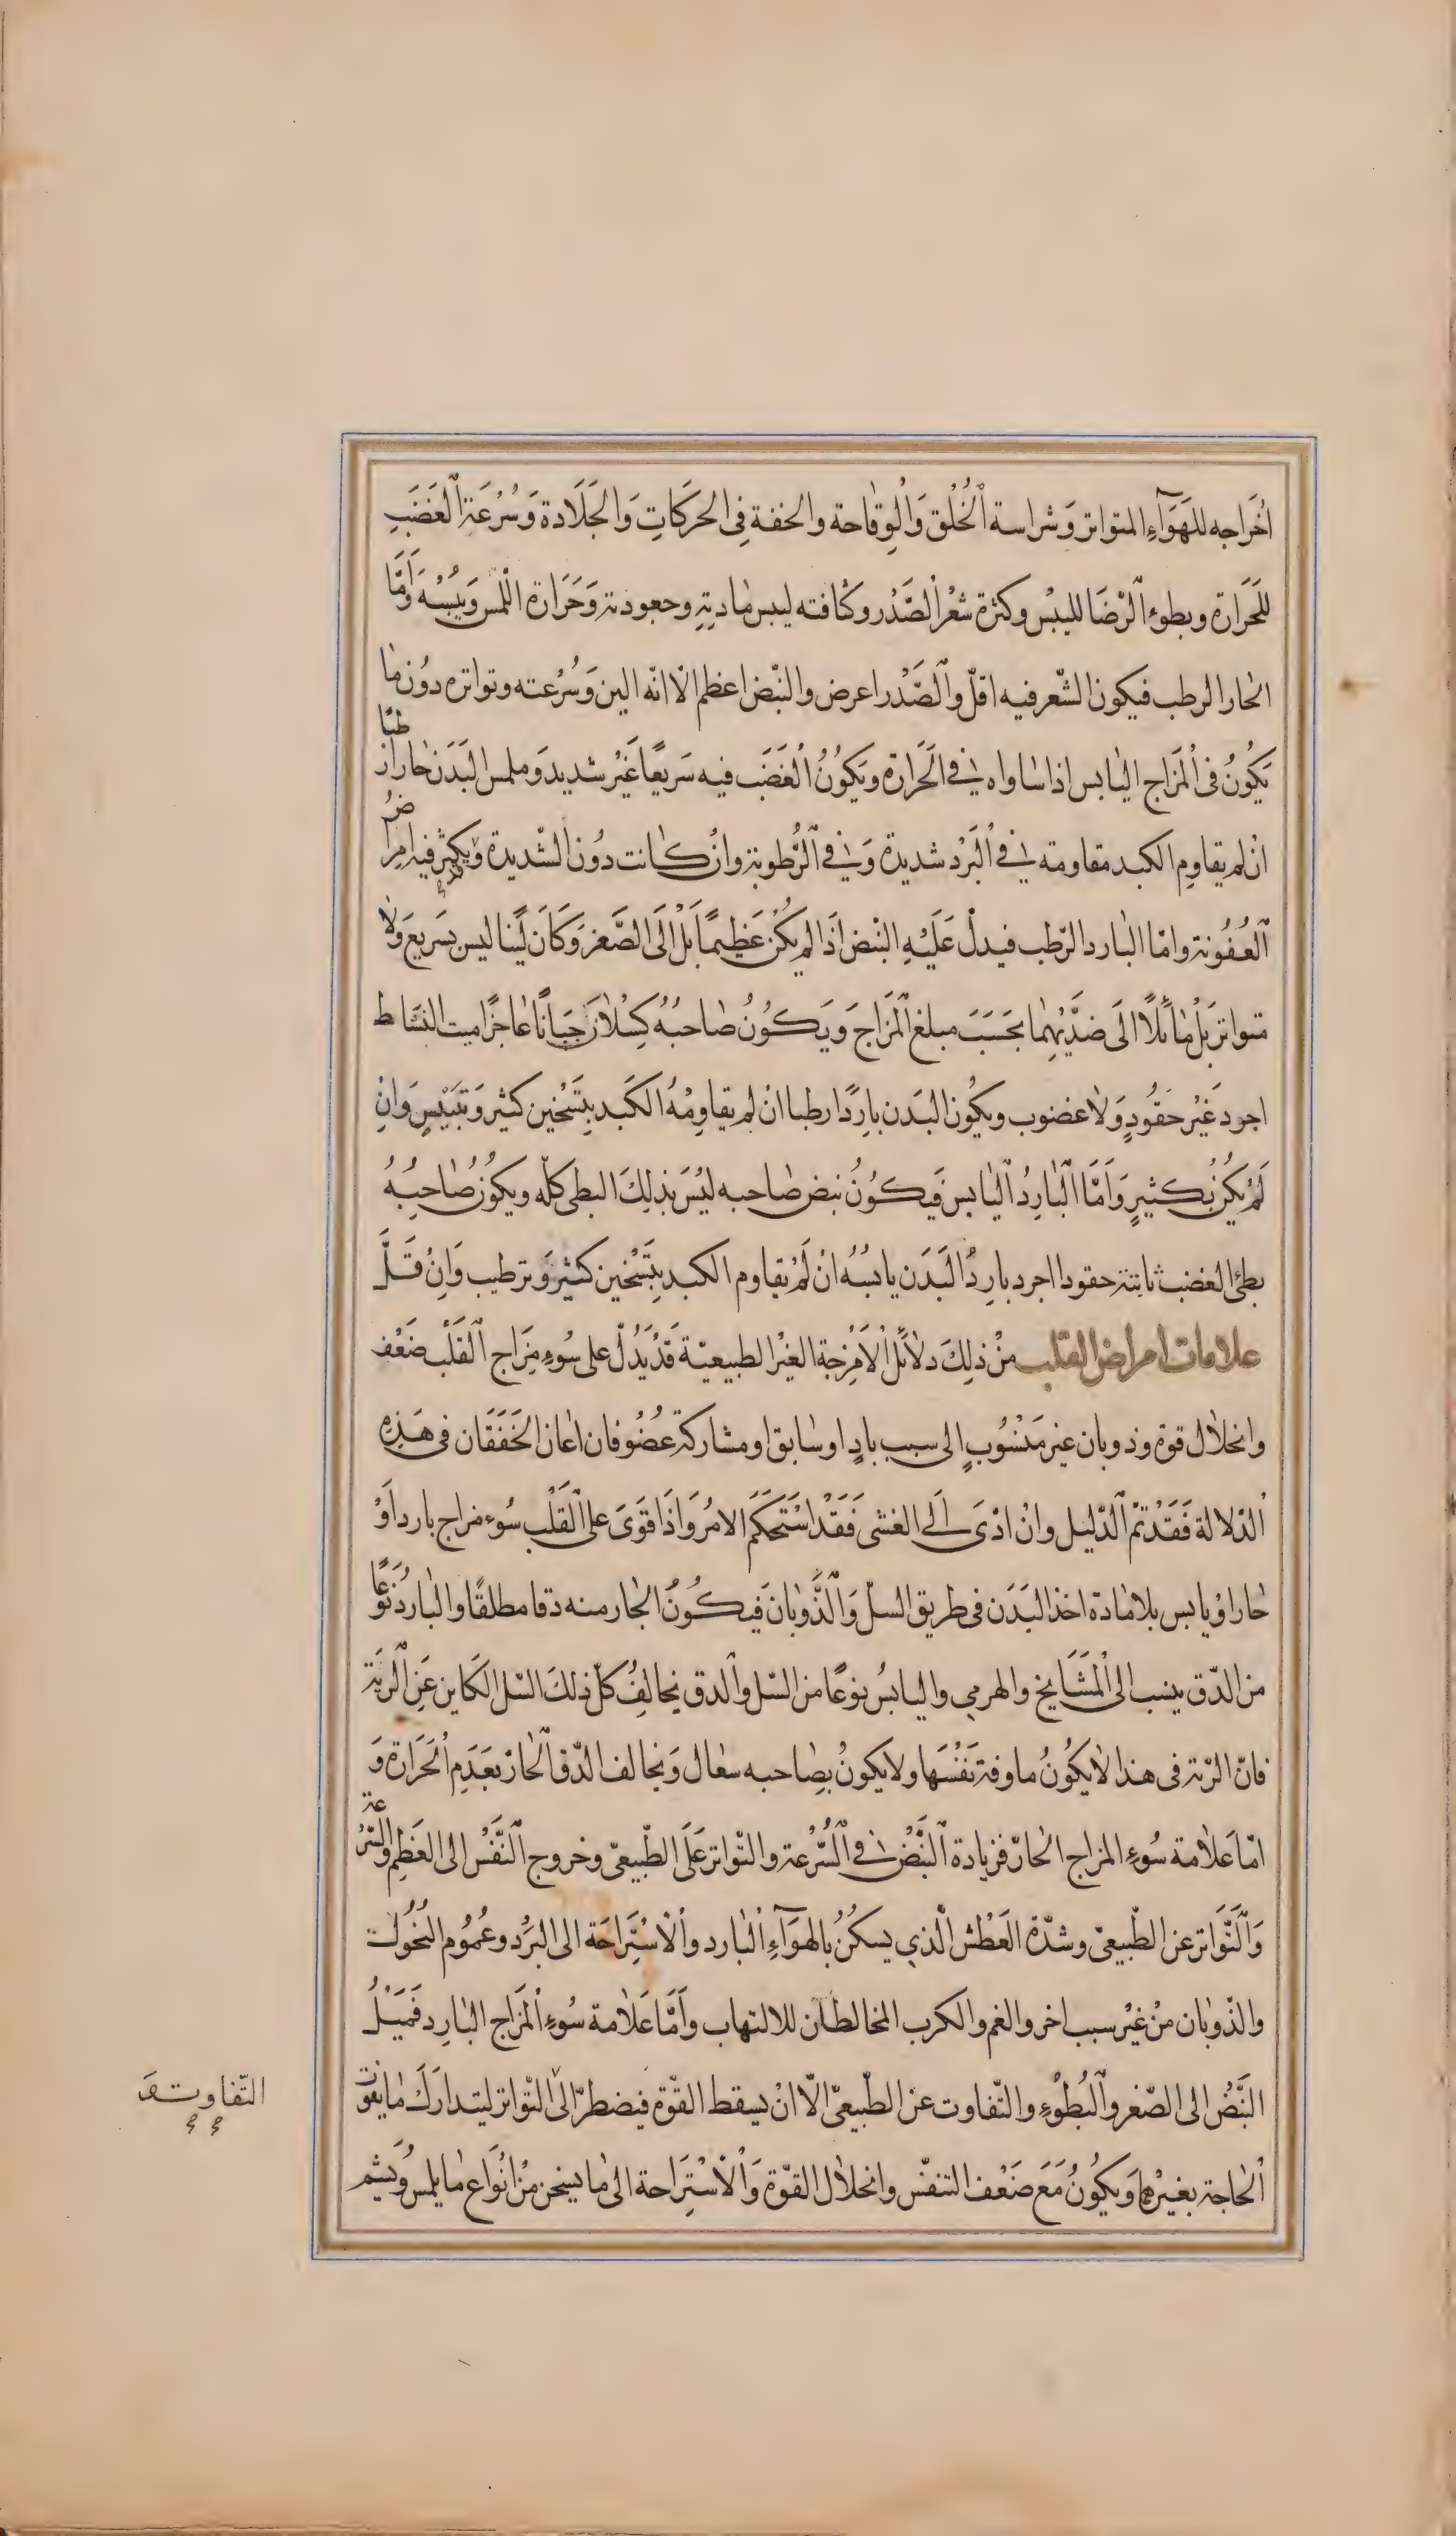 اخراجه للهواء المتواتر وشراسة الخلق والوقاحة والخفة فى الحركات والجلادة وسرعة الغضب
للحرارة وبطوء الرضا لليبس وكثرة شعر الصدر وكثافته ليبس مادته وجعودته وحرارة اللمس ويبسه واما
الحار الرطب فيكون الشعر فيه اقل والصدر اعرض والنبض اعظم الا انه الين وسرعته وتواتره دون ما
يكون فى المزاج اليابس اذا ساواه فى الحرارة ويكون الغضب فيه سريعا غير شديد وملمس البدن حارا رطبا
ان لم يقاوم الكبد مقاومته فى البرد شديدة وفى الرطوبة وان كانت دون الشديدة ويكثر فيه امراض
العفونة واما البارد الرطب فيدل عليه النبض اذا لم يكن عظيما بل الى الصغر وكان لينا ليس بسريع ولا
متواتر بل مائلا الى ضديهما بحسب مبلغ المزاج ويكون صاحبه كسلان جبانا عاجزا ميت النشاط
اجود غير حقود ولا غضوب ويكون البدن باردا رطبا ان لم يقاومه الكبد بتسخين كثير وتيبيس وان
لم يكن بكثير واما البارد اليابس فيكون نبض صاحبه ليس بذلك البطى كله ويكون صاحبه
بطئ الغضب ثابتة حقودا اجرد بارد البدن يابسه ان لم يقاوم الكبد بتسخين كثير وترطيب وان قل
علامات امراض القلب من ذلك دلائل الامزجة الغير الطبيعية قد يدل على سوء مزاج القلب ضعف
وانحلال قوة وذوبان غير منسوب الى سبب باد او سابق او مشاركة عضو فان اعان الخفقان فى هذه
الدلالة فقد تم الدليل وان ادى الى الغشى فقد استحكم الامر واذا قوى على القلب سوء مزاج بارد او
حار او يابس بلا مادة اخذ البدن فى طريق السل والذوبان فيكون الحار منه دقا مطلقا والبارد نوعا
من الدق ينسب الى المشايخ والهرمى واليابس نوعا من السل والدق يخالف كل ذلك السل الكاين عن الرية
فان الرية فى هذا لا يكون ماوفة نفسها ولا يكون بصاحبه سعال ويخالف الدق الحار بعدم الحرارة و
اما علامة سوء المزاج الحار فزيادة النبض فى السرعة والتواتر على الطبيعى وخروج النفس الى العظم والسرعة
والتواتر عن الطبيعى وشدة العطش الذي يسكن بالهواء البارد والاستراحة الى البرد وعموم النحول
والذوبان من غير سبب اخر والغم والكرب المخالطان للالتهاب واما علامة سوء المزاج البارد فميل
النبض الى الصغر والبطوء والتفاوت عن الطبيعى الا ان يسقط القوة فيضطر الى التواتر ليتدارك ما يفوت
الحاجة بغيرها ويكون مع ضعف التنفس وانحلال القوة والاستراحة الى ما يسخن من انواع ما يلمس ويشم
التفاوت